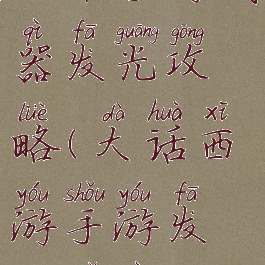 qì fā guāng gōng
器发光攻
lüè dà huà xī
略(大话西
yóu shǒu yóu fā
游手游发